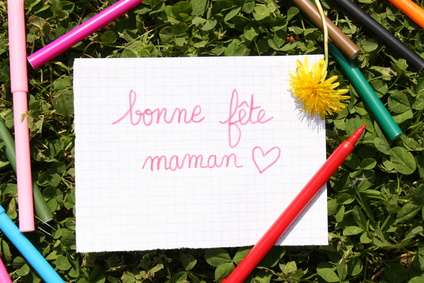 bonne fête
maman ♡